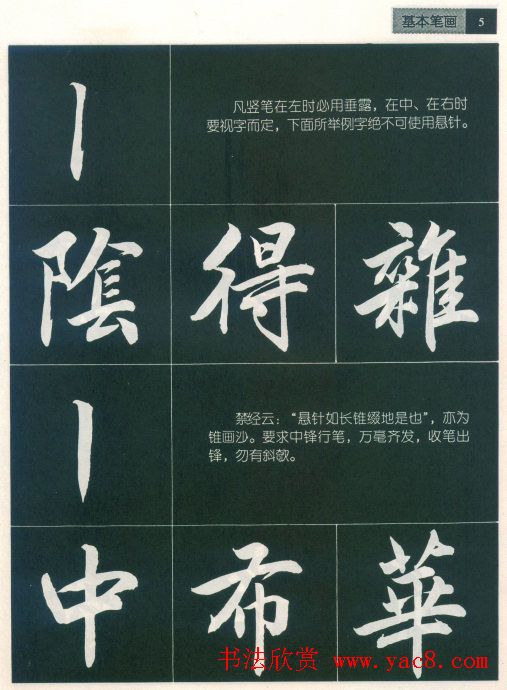 基本笔画 5
凡竖笔在左时必用垂露，在中、在右时
要视字而定，下面所举例字绝不可使用悬针。
陰 得 雜
禁经云：“悬针如长锥缀地是也”，亦为
锥画沙。要求中锋行笔，万毫齐发，收笔出
锋，勿有斜欹。
中 布 華
书法欣赏 www.yac8.com